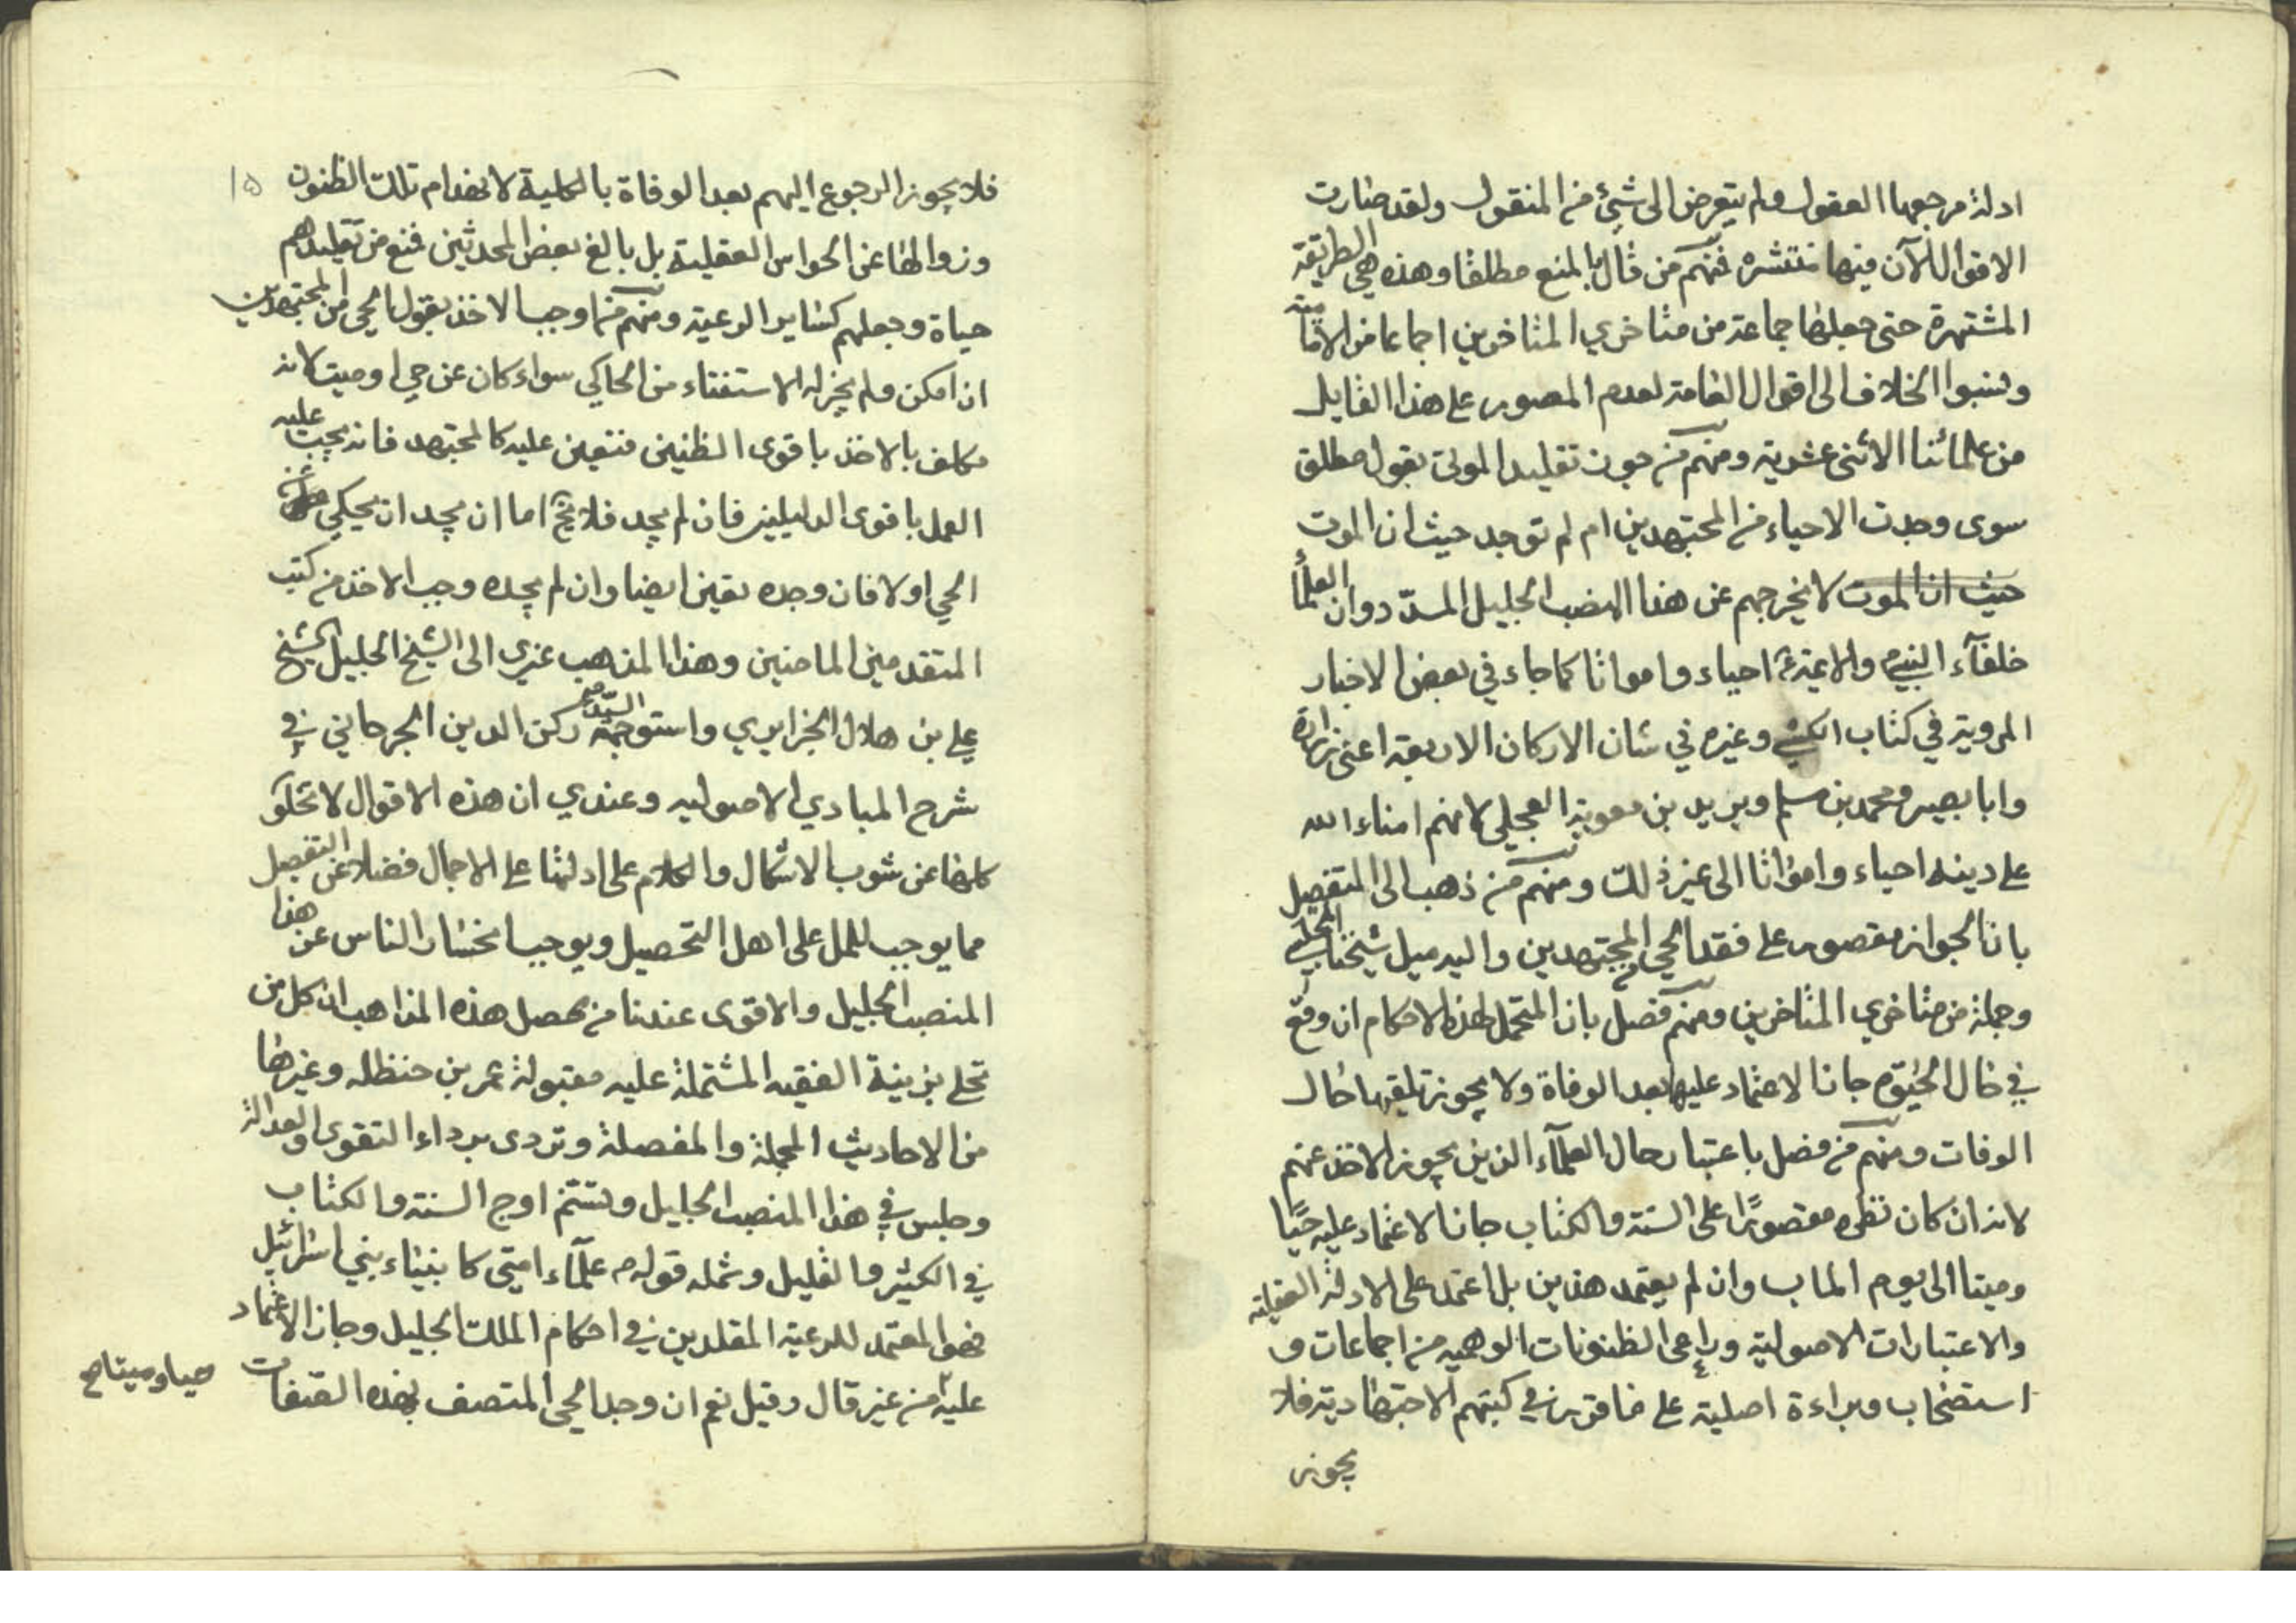 ادلة مرجعها العقول ولم يتعرض الى شيء من المنقول ولقد صارت
الاقوال الآن فيها منتشره فمنهم من قال بالمنع مطلقا وهذه هي الطريقة
المشتهرة حتى جعلها جماعة من متاخري المتاخرين اجماعا من الامامية
ونسبوا الخلاف الى اقوال العامة لعدم العصور على هذا القايل
من علمائنا الاثنى عشرية ومنهم من جوز تقليد الموتى بقول مطلق
سوى وجدت الاحياء من المجتهدين ام لم توجد حيث ان الموت
حيث ان الموت لا يخرجهم عن هذا المنصب الجليل المسدّد وان العلماء
خلفآء النبي والائمة احياء وامواتا كما جاء في بعض الاخبار
المروية في كتاب الكشي وغيره في شان الاركان الاربعة اعنى زرارة
وابا بصير ومحمد بن مسلم وبريد بن معوية العجلي لانهم امناء الله
على دينه احياء وامواتا الى غير ذلك ومنهم من ذهب الى التفصيل
بان الجواز مقصور على فقد الحي المجتهدين واليه ميل شيخنا المجلسي
وجملة من متاخري المتاخرين ومنهم فصل بان المتحمل لهذه الاحكام ان وقع
في حال الحيوة جاز الاعتماد عليها بعد الوفاة ولا يجوز تلقيها حال
الوفات ومنهم من فصل باعتبار حال العلمآء الذين يجوز الاخذ عنهم
لانه ان كان نظره مقصورًا على السنة والكتاب جاز الاعتماد عليه حيًا
وميتا الى يوم الماب وان لم يعتمد هذين بل اعتمد على الادلة العقلية
والاعتبارات الاصولية وراعى الظنونات الوهميه من اجماعات و
استصحاب وبراءة اصلية على ما قرر في كتبهم الاجتهادية فلا
يجوز
فلا يجوز الرجوع اليهم بعد الوفاة بالكلية لانعدام تلك الظنون ١٥
وزوالها عن الحواس العقلية بل بالغ بعض المحدثين فمنع من تقليدهم
حياة وجعلهم كساير الرعية ومنهم من اوجب الاخذ بقول الحي من المجتهدين
ان امكن ولم يجز له الاستفتاء من الحاكي سواء كان عن حي او ميت لانه
مكلف بالاخذ باقوى الظنين فتعين عليه كالمجتهد فانه يجب عليه
العمل باقوى الدليلين فان لم يجد فلا يخ اما ان يجد ان يحكي عن
الحي اولا فان وجده تعين ايضا وان لم يجده وجب الاخذ من كتب
المتقدمين الماضين وهذا المذهب عزي الى الشيخ الجليل الشيخ
علي بن هلال الجزايري واستوجهه السيد ركن الدين الجرجاني في
شرح المبادي الاصوليه وعندي ان هذه الاقوال لا تخلو
كلها عن شوب الاشكال والكلام على ادلتها على الاجمال فضلا عن التفصيل
مما يوجب الملل على اهل التحصيل ويوجب انحسار الناس عن هذا
المنصب الجليل والاقوى عندنا من محصل هذه المذاهب ان كل من
تحلى بزينة الفقيه المشتملة عليه مقبولة عمر بن حنظله وغيرها
من الاحاديث المجملة والمفصلة وتردى برداء التقوى والعدالة
وجلس في هذا المنصب الجليل وتسنم اوج السنة والكتاب
في الكثير والقليل وشمله قوله علمآء امتي كانبياء بني اسرائيل
فهو المعتمد للرعية المقلدين في احكام الملك الجليل وجاز الاعتماد
عليه من غير قال وقيل نعم ان وجد الحي المتصف بهذه الصفات
حيا وميتا صح